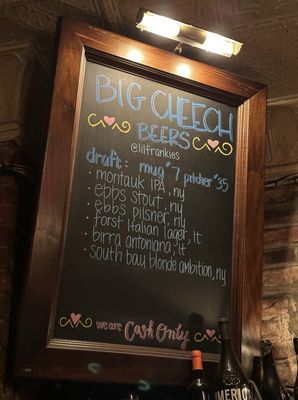 BIG CHEECH
BEERS
@lilfrankies
draft: mug $7 pitcher $35
· montauk IPA, ny
· ebbs stout, ny
· ebbs pilsner, ny
· forst Italian lager, it
· birra antoniana, it
· south bay blonde ambition, ny
we are Cash Only
MERIC